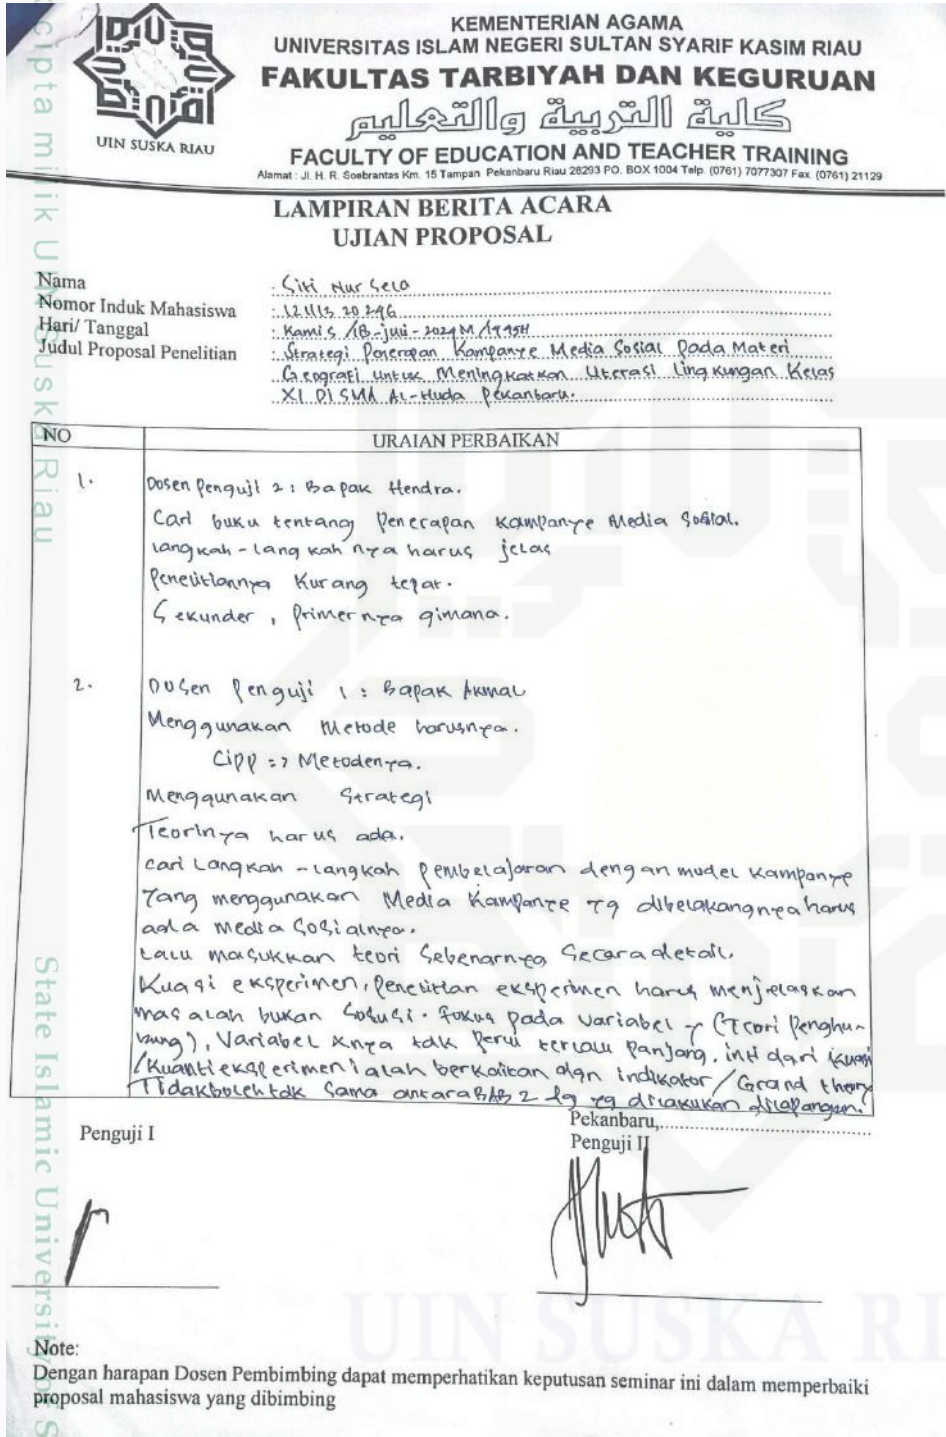 KEMENTERIAN AGAMA
UNIVERSITAS ISLAM NEGERI SULTAN SYARIF KASIM RIAU
FAKULTAS TARBIYAH DAN KEGURUAN
كلية التربية والتعليم
FACULTY OF EDUCATION AND TEACHER TRAINING
Alamat : Jl. H. R. Soebrantas Km. 15 Tampan Pekanbaru Riau 28293 PO. BOX 1004 Telp. (0761) 7077307 Fax. (0761) 21129
UIN SUSKA RIAU
LAMPIRAN BERITA ACARA
UJIAN PROPOSAL
Nama : Siti Nur Sela
Nomor Induk Mahasiswa : 12111320296
Hari/ Tanggal : Kamis /18-juli-2024 M/1445H
Judul Proposal Penelitian : Strategi Penerapan Kampanye Media Sosial Pada Materi
Geografi Untuk Meningkatkan Literasi Lingkungan Kelas
XI DI SMA AL-Huda Pekanbaru.
NO URAIAN PERBAIKAN
1. Dosen Penguji 2 : Bapak Hendra.
Cari buku tentang Penerapan Kampanye Media Sosial.
langkah-langkahnya harus jelas
Penelitiannya Kurang tepat.
Sekunder, Primernya gimana.
2. Dosen Penguji 1 : Bapak Akmal
Menggunakan Metode harusnya.
Cipp => Metodenya.
Menggunakan Strategi
Teorinya harus ada.
cari Langkah-langkah Pembelajaran dengan model Kampanye
Yang menggunakan Media Kampanye yg dibelakangnya harus
ada media Sosialnya.
Lalu masukkan teori Sebenarnya Secara detail.
Kuasi eksperimen, Penelitian eksperimen harus menjelaskan
masalah bukan Solusi. Fokus pada variabel Y (Teori Penghu-
bung), Variabel Xnya tdk Perlu terlalu Panjang. inti dari kuasi
/Kuanti eksperimen ialah berkaitan dgn indikator / Grand theory
Tidak boleh tdk Sama antara BAB 2 dg yg dilakukan dilapangan.
Pekanbaru,
Penguji I Penguji II
Note:
Dengan harapan Dosen Pembimbing dapat memperhatikan keputusan seminar ini dalam memperbaiki
proposal mahasiswa yang dibimbing
cipta milik UIN Suska Riau
State Islamic University of S
UIN SUSKA RI